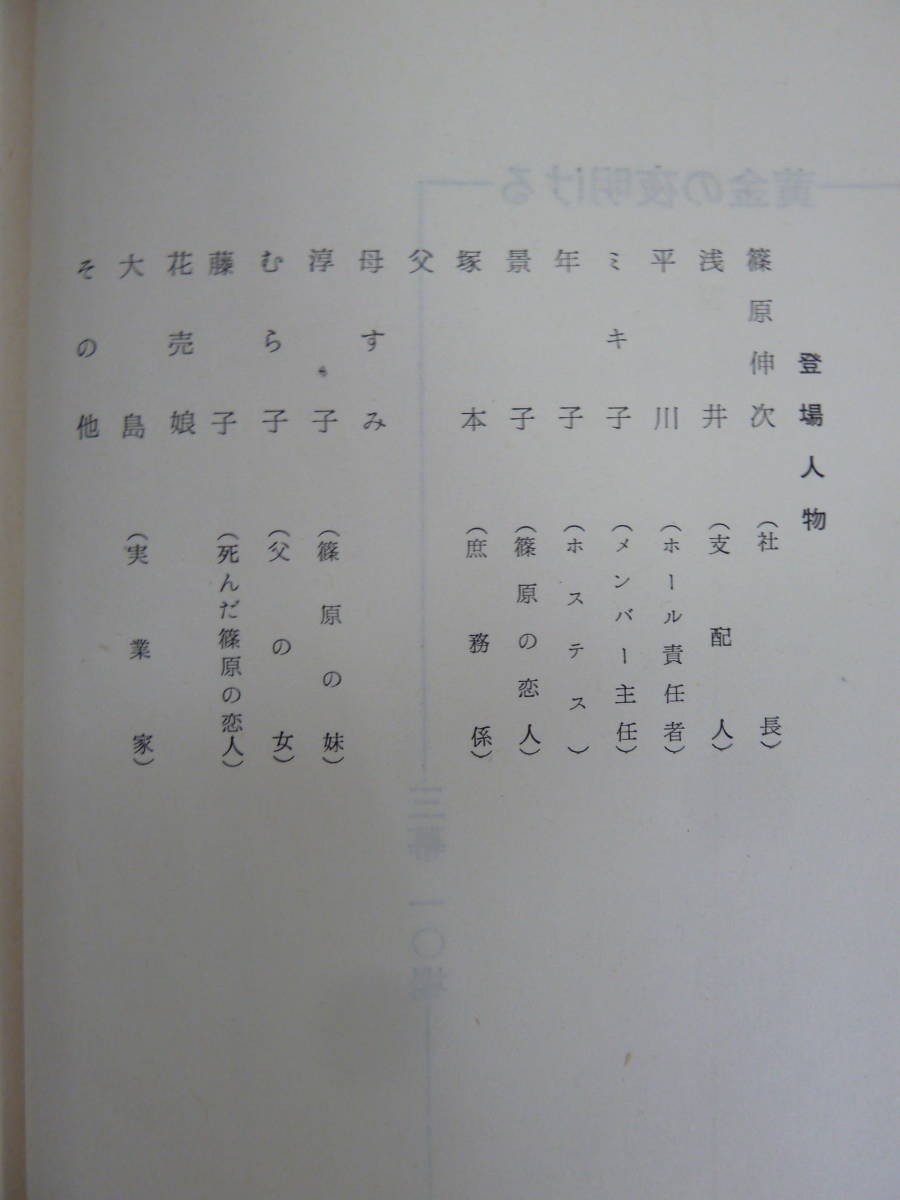 登場人物
篠原伸次（社長）
浅井（支配人）
平川（ホール責任者）
ミキ子（メンバー主任）
年子（ホステス）
景子（篠原の恋人）
塚本（庶務係）
父
母すみ
淳子（篠原の妹）
むら子（父の女）
藤子（死んだ篠原の恋人）
花売娘
大島（実業家）
その他
黄金の夜明ける
三幕一〇場